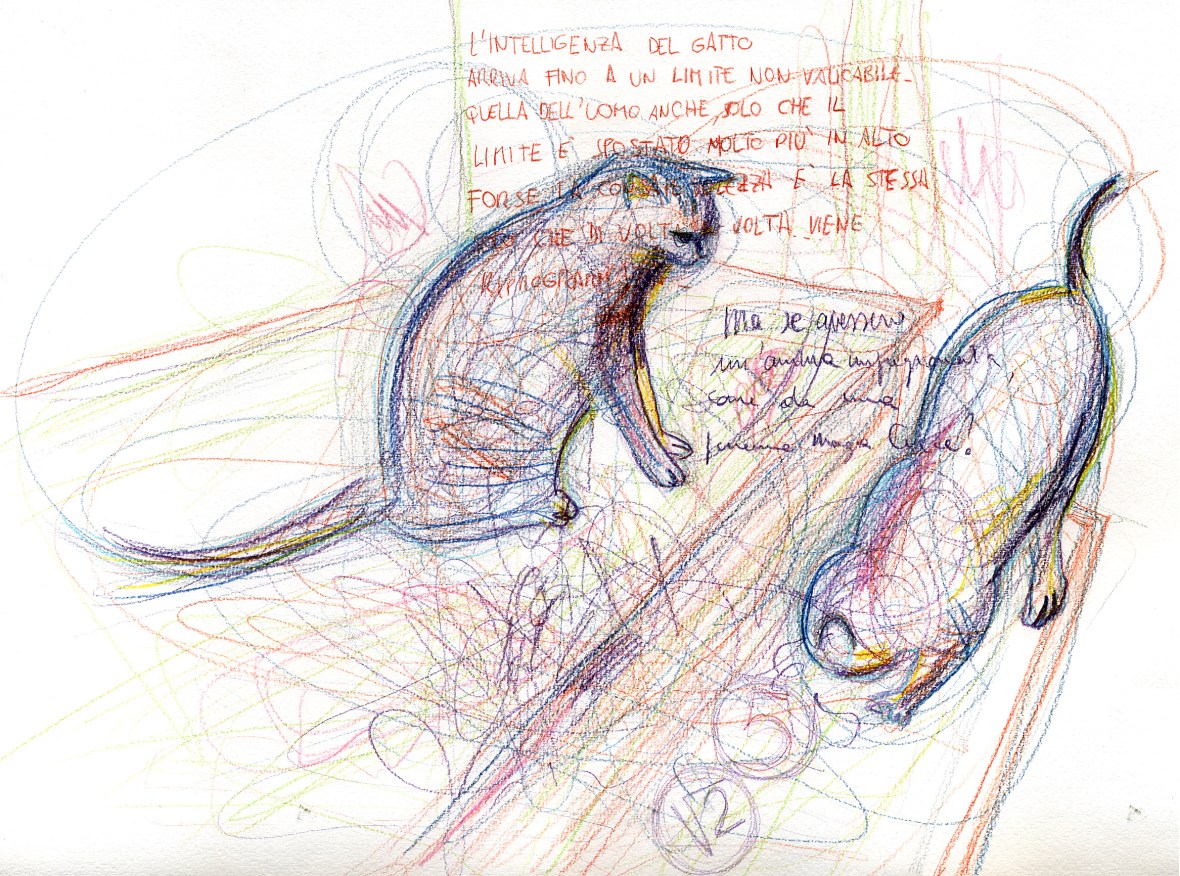 L'INTELLIGENZA DEL GATTO
ARRIVA FINO A UN LIMITE NON VALICABILE_
QUELLA DELL'UOMO ANCHE, SOLO CHE IL
LIMITE È SPOSTATO MOLTO PIÙ IN ALTO
FORSE LA È LA STESSA
CHE DI VOLTA VOLTA VIENE
Ma se avessero
un'anima imprigionata,
da una
Maga Circe?
5
12